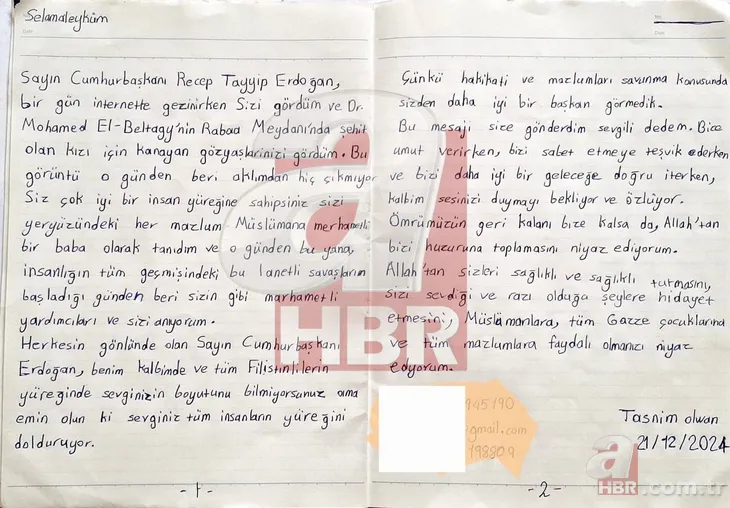 Selamaleyküm
Sayın Cumhurbaşkanı Recep Tayyip Erdoğan,
bir gün internette gezinirken Sizi gördüm ve Dr.
Mohamed El-Beltagy'nin Rabaa Meydanı'nda şehit
olan kızı için kanayan gözyaşlarınızı gördüm. Bu
görüntü o günden beri aklımdan hiç çıkmıyor
Siz çok iyi bir insan yüreğine sahipsiniz sizi
yeryüzündeki her mazlum Müslümana merhametli
bir baba olarak tanıdım ve o günden bu yana,
insanlığın tüm geçmişindeki bu lanetli savaşların
başladığı günden beri sizin gibi marhametli
yardımcıları ve sizi anıyorum.
Herkesin gönlünde olan Sayın Cumhurbaşkanı
Erdoğan, benim kalbimde ve tüm Filistinlilerin
yüreğinde sevginizin boyutunu bilmiyorsunuz ama
emin olun ki sevginiz tüm insanların yüreğini
dolduruyor.
-1-
No:
Date:
Çünkü hakikati ve mazlumları savunma konusunda
sizden daha iyi bir başkan görmedik.
Bu mesajı size gönderdim sevgili dedem. Bize
umut verirken, bizi sabet etmeye teşvik ederken
ve bizi daha iyi bir geleceğe doğru iterken,
kalbim sesinizi duymayı bekliyor ve özlüyor.
Ömrümüzün geri kalanı bize kalsa da, Allah'tan
bizi huzuruna toplamasını niyaz ediyorum.
Allah'tan sizleri sağlıklı ve sağlıklı tutmasını,
sizi sevdiği ve razı olduğu şeylere hidayet
etmesini, Müslümanlara, tüm Gazze çocuklarına
ve tüm mazlumlara faydalı olmanızı niyaz
ediyorum.
945190
gmail.com
198809
Tasnim olwan
21/12/2024
-2-
a
HBR
a
HBR.com.tr